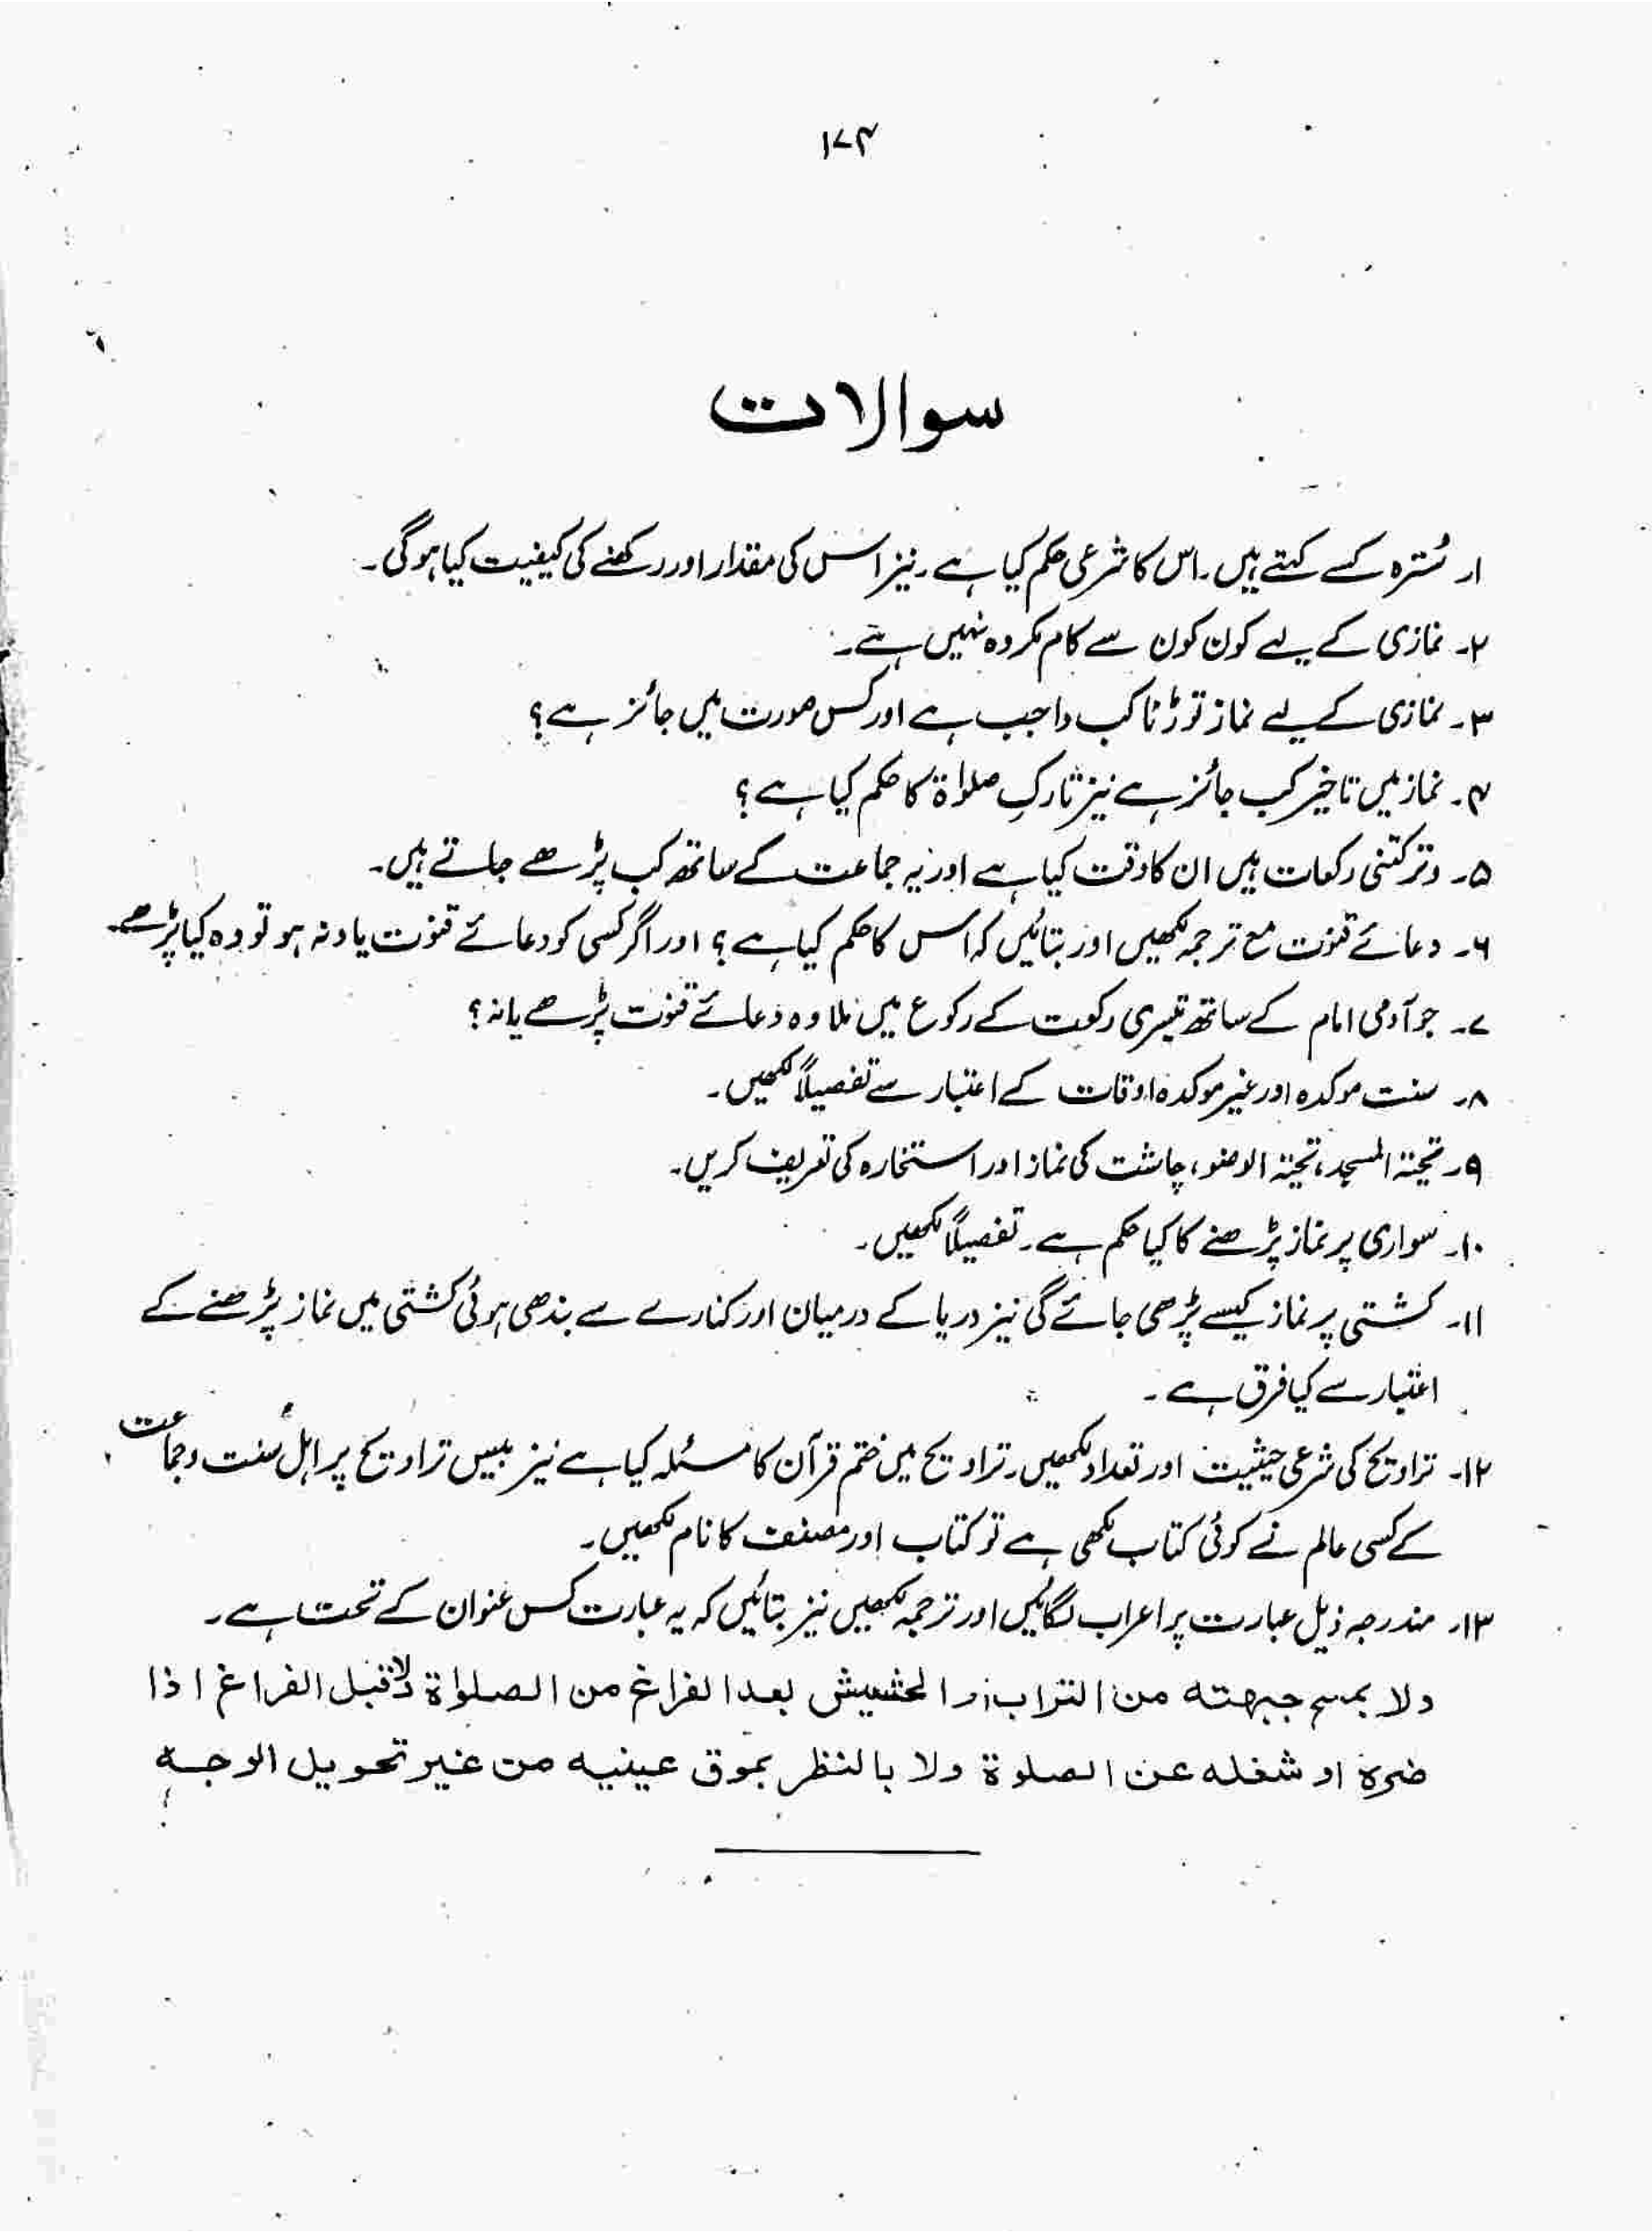 ۱۷۴
سوالات
۱۔ سُترہ کسے کہتے ہیں۔ اس کا شرعی حکم کیا ہے۔ نیز اس کی مقدار اور رکھنے کی کیفیت کیا ہوگی۔
۲۔ نمازی کے لیے کون کون سے کام مکروہ نہیں ہے۔
۳۔ نمازی کے لیے نماز توڑنا کب واجب ہے اور کس صورت میں جائز ہے؟
۴۔ نماز میں تاخیر کب جائز ہے نیز تارکِ صلواۃ کا حکم کیا ہے؟
۵۔ وتر کتنی رکعات ہیں ان کا وقت کیا ہے اور یہ جماعت کے ساتھ کب پڑھے جاتے ہیں۔
۶۔ دعائے قنوت مع ترجمہ لکھیں اور بتائیں کہ اس کا حکم کیا ہے؟ اور اگر کسی کو دعائے قنوت یاد نہ ہو تو وہ کیا پڑھے۔
۷۔ جو آدمی امام کے ساتھ تیسری رکعت کے رکوع میں ملا وہ دعائے قنوت پڑھے یا نہ؟
۸۔ سنت موکدہ اور غیر موکدہ اوقات کے اعتبار سے تفصیلاً لکھیں۔
۹۔ تحیۃ المسجد، تحیۃ الوضو، چاشت کی نماز اور استخارہ کی تعریف کریں۔
۱۰۔ سواری پر نماز پڑھنے کا کیا حکم ہے۔ تفصیلاً لکھیں۔
۱۱۔ کشتی پر نماز کیسے پڑھی جائے گی نیز دریا کے درمیان اور کنارے سے بندھی ہوئی کشتی میں نماز پڑھنے کے
اعتبار سے کیا فرق ہے۔
۱۲۔ تراویح کی شرعی حیثیت اور تعداد لکھیں۔ تراویح میں ختم قرآن کا مسئلہ کیا ہے نیز بیس تراویح پر اہل سنت وجماعت
کے کسی عالم نے کوئی کتاب لکھی ہے تو کتاب اور مصنف کا نام لکھیں۔
۱۳۔ مندرجہ ذیل عبارت پر اعراب لگائیں اور ترجمہ لکھیں نیز بتائیں کہ یہ عبارت کس عنوان کے تحت ہے۔
ولا بمسح جبهته من التراب او الحشیش بعد الفراغ من الصلواة ولا قبل الفراغ اذا
ضره او شغله عن الصلوة ولا بالنظر بموق عینیه من غیر تحویل الوجه